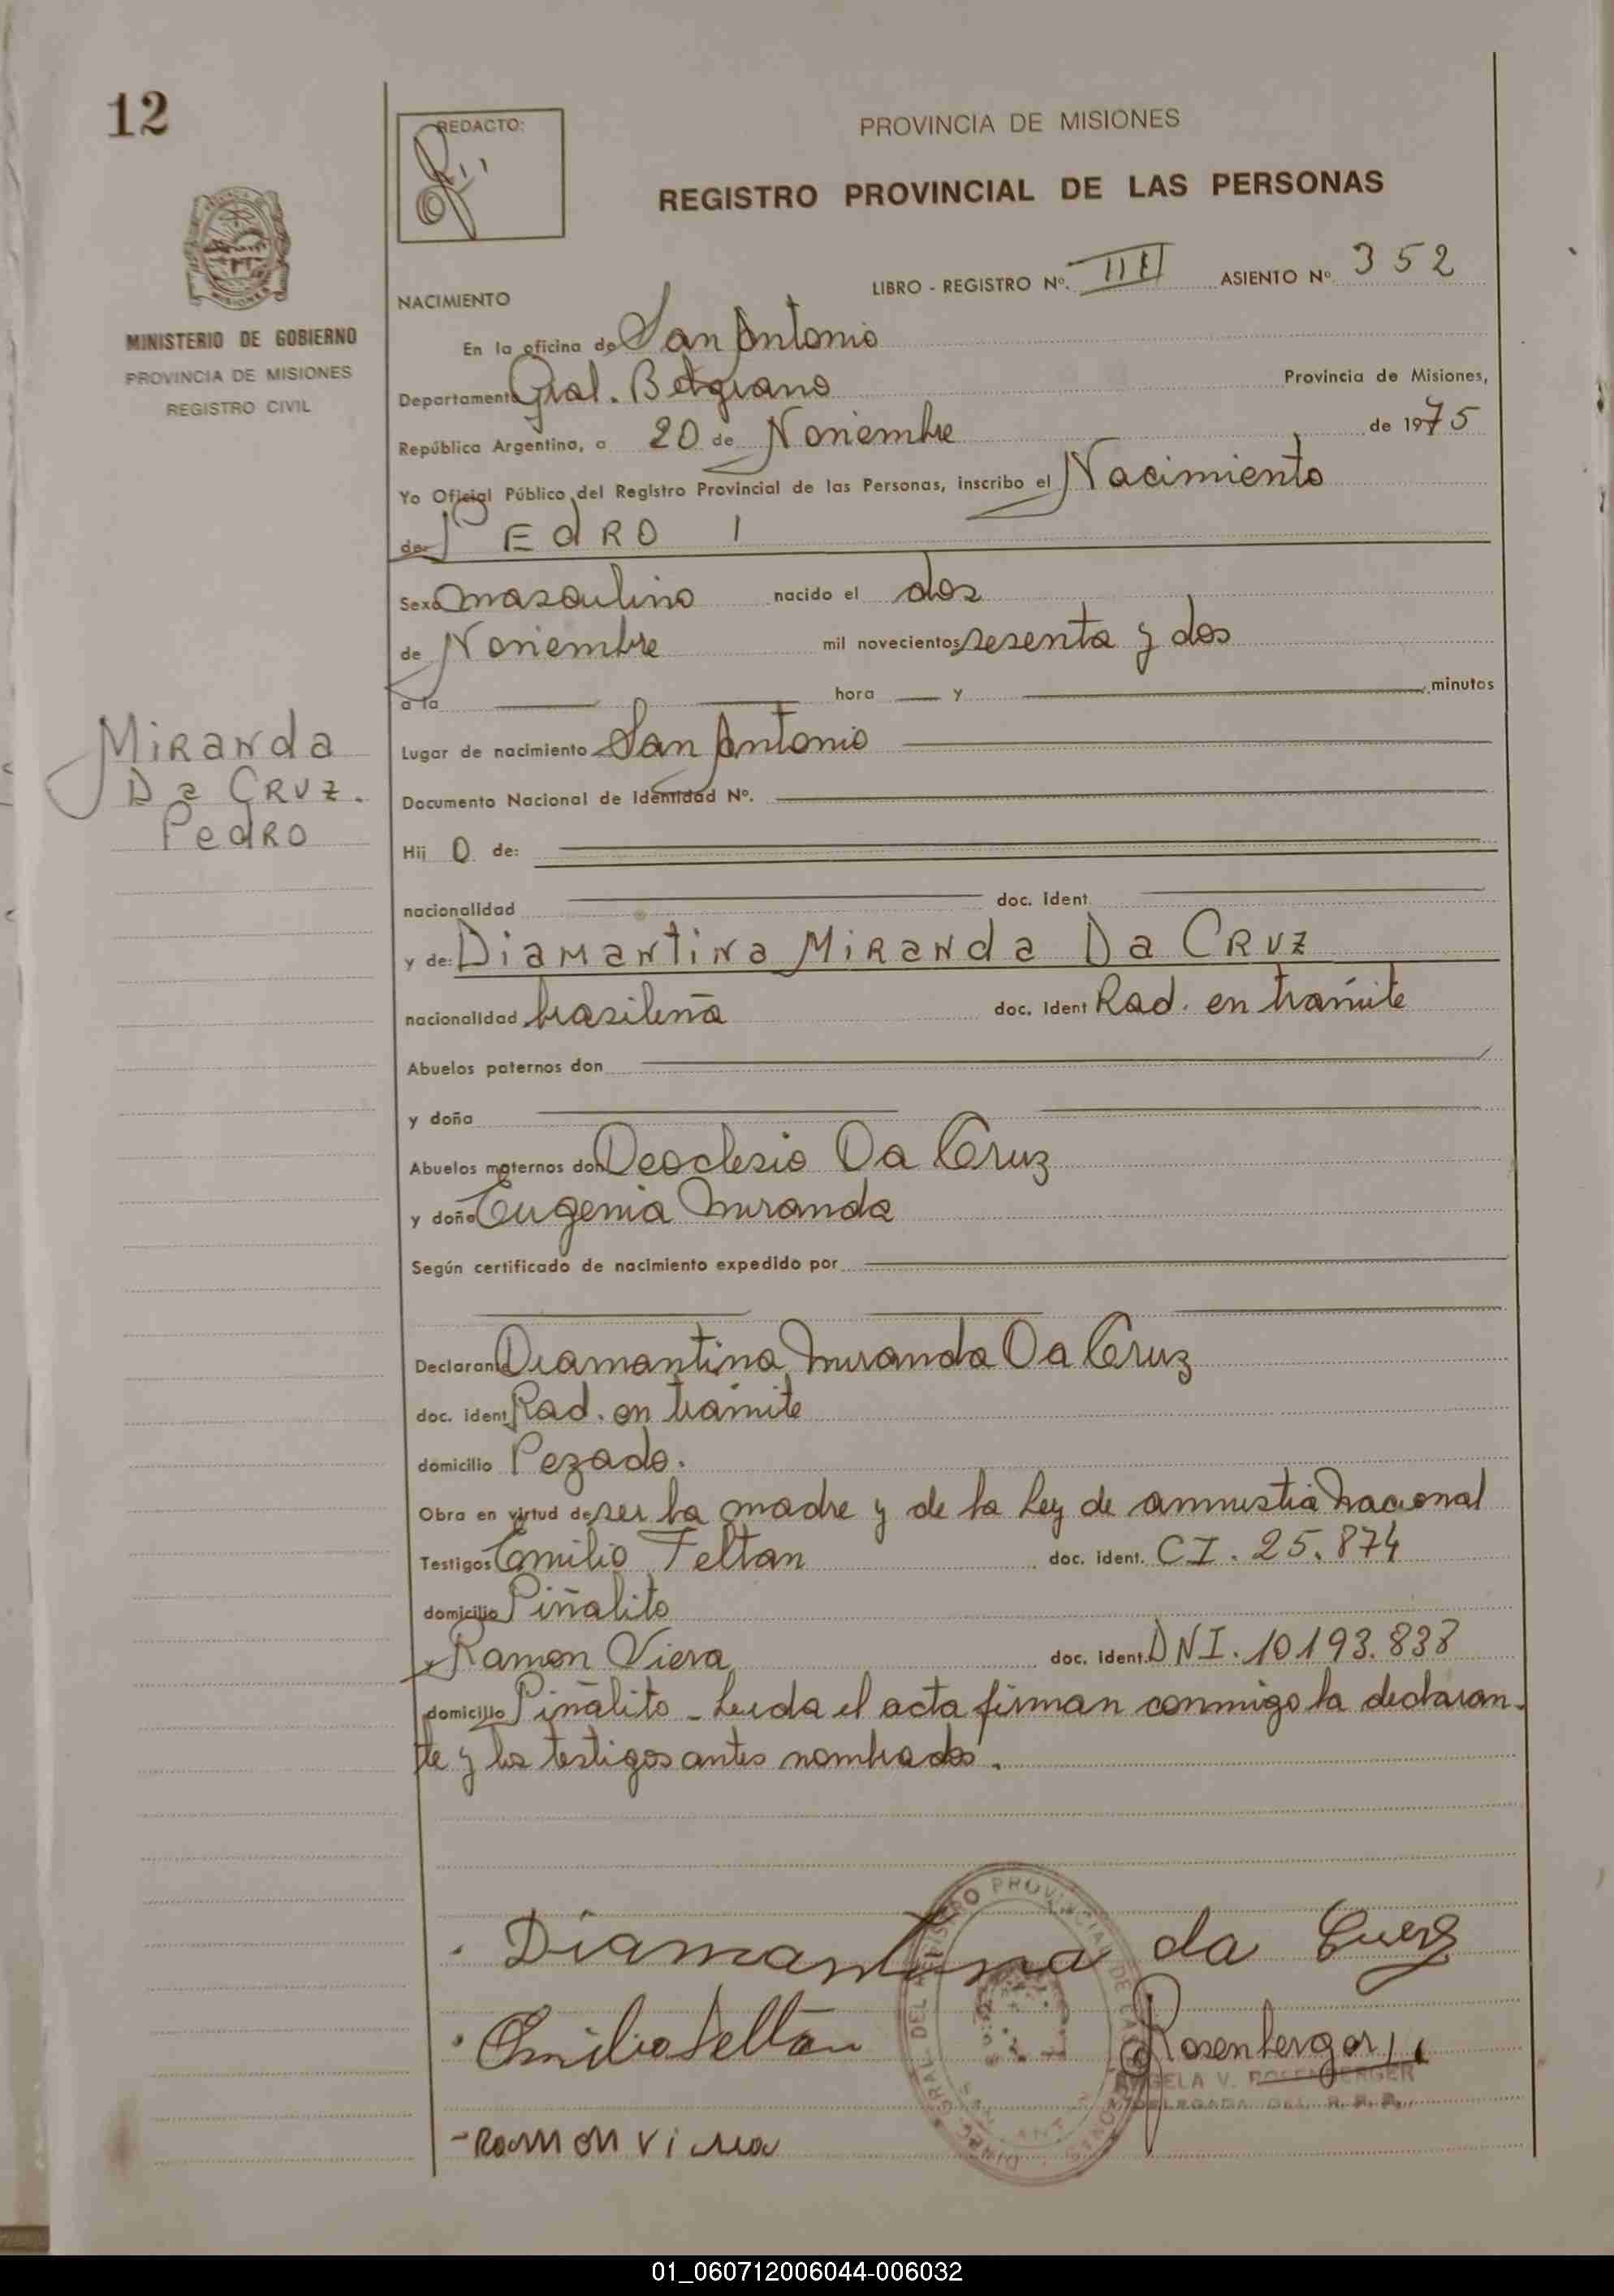 12
REDACTO:
PROVINCIA DE MISIONES
REGISTRO PROVINCIAL DE LAS PERSONAS
MISIONES
MINISTERIO DE GOBIERNO
PROVINCIA DE MISIONES
REGISTRO CIVIL
LIBRO - REGISTRO Nº. III ASIENTO Nº. 352
NACIMIENTO
En la oficina de San Antonio
Departamento Gral. Belgrano Provincia de Misiones,
República Argentina, a 20 de Noviembre de 1975
Yo Oficial Público del Registro Provincial de las Personas, inscribo el Nacimiento
de: PEdRO
Sexo masculino nacido el dos
de Noviembre mil novecientos sesenta y dos
a la hora y minutos
Lugar de nacimiento San Antonio
Miranda
Da Cruz.
Pedro
Documento Nacional de Identidad Nº.
Hij o de:
nacionalidad doc. ident.
y de: Diamantina Miranda Da Cruz
nacionalidad brasileña doc. ident Rad. en tramite
Abuelos paternos don
y doña
Abuelos maternos don Deoclesio Da Cruz
y doña Eugenia Miranda
Según certificado de nacimiento expedido por
Declarante Diamantina Miranda Da Cruz
doc. ident. Rad. en tramite
domicilio Pezado.
Obra en virtud de ser la madre y de la Ley de amnistia Nacional
Testigos Emilio Feltan doc. ident. CI. 25.874
domicilio Piñalito
y Ramon Viera doc. ident. DNI. 10193.838
domicilio Piñalito - Leida el acta firman conmigo la declaran-
te y los testigos antes nombrados.
Diamantina da Cruz
Emilio Feltan
Rosenberger
ANGELA V. ROSENBERGER
DELEGADA DEL R. P. P.
- Ramon Viera
01_060712006044-006032